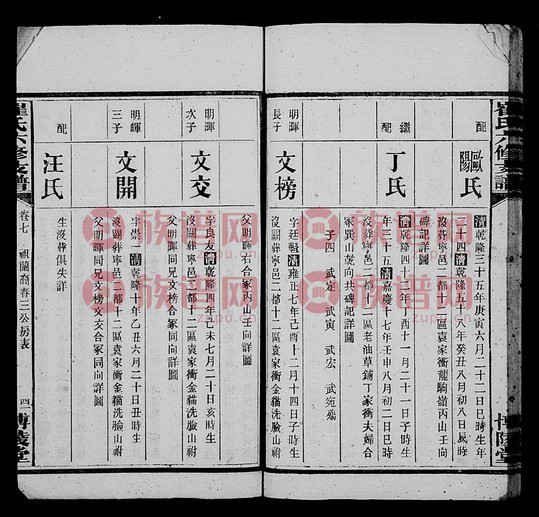 崔氏六修支譜
配
歐陽氏
清乾隆三十五年庚寅六月二十二日巳時生年
二十四清乾隆五十八年癸丑八月初八日辰時
沒葬寧邑二都十二區袁家衝龍駒嶺丙山壬向
碑記詳圖
繼配
丁氏
清乾隆四十年丁酉十一月二十一日子時生
年三十五清嘉慶十七年壬申八月初二日巳時
沒葬寧邑二都十二區老油草鋪丁家衝夫婦合
冢巽山乾向共碑記詳圖
子四 武定 武寅 武宏 武宛殤
明暉長子
文榜
字廷 清雍正七年己酉十二月十四日子時生
沒闕葬寧邑二都十二區袁家衝金貓洗臉山祔
父明暉右合冢丙山壬向詳圖
明暉次子
文交
字良友清乾隆四年己未七月二十日亥時生
沒闕葬寧邑二都十二區袁家衝金貓洗臉山祔
父明暉同兄文榜合冢同向詳圖
明暉三子
文開
字崇一清乾隆十年乙丑六月二十日丑時生
沒闕葬寧邑二都十二區袁家衝金貓洗臉山祔
父明暉同兄文榜文交合冢同向詳圖
配
汪氏
生沒葬俱失詳
崔氏六修支譜
卷七
祖蘭裔春三公房表
四
博陵堂
博陵堂
族譜网
zupu.cn
族譜网
zupu.cn